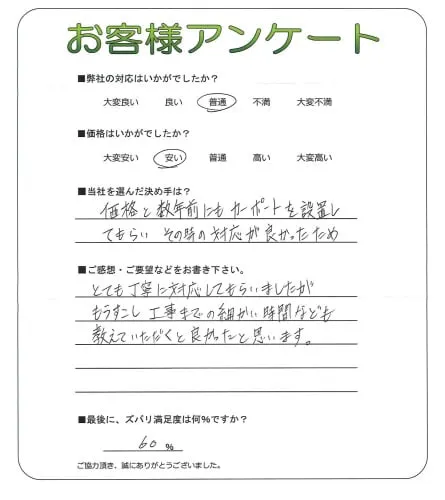 お客様アンケート
■弊社の対応はいかがでしたか?
大変良い 良い 普通 不満 大変不満
■価格はいかがでしたか?
大変安い 安い 普通 高い 大変高い
■当社を選んだ決め手は?
価格と数年前にもカーポートを設置し
てもらい その時の対応が良かったため
■ご感想・ご要望などをお書き下さい。
とても丁寧に対応してもらいましたが
もうすこし工事までの細かい時間なども
教えていただくと良かったと思います。
■最後に、ズバリ満足度は何%ですか?
60 %
ご協力頂き、誠にありがとうございました。